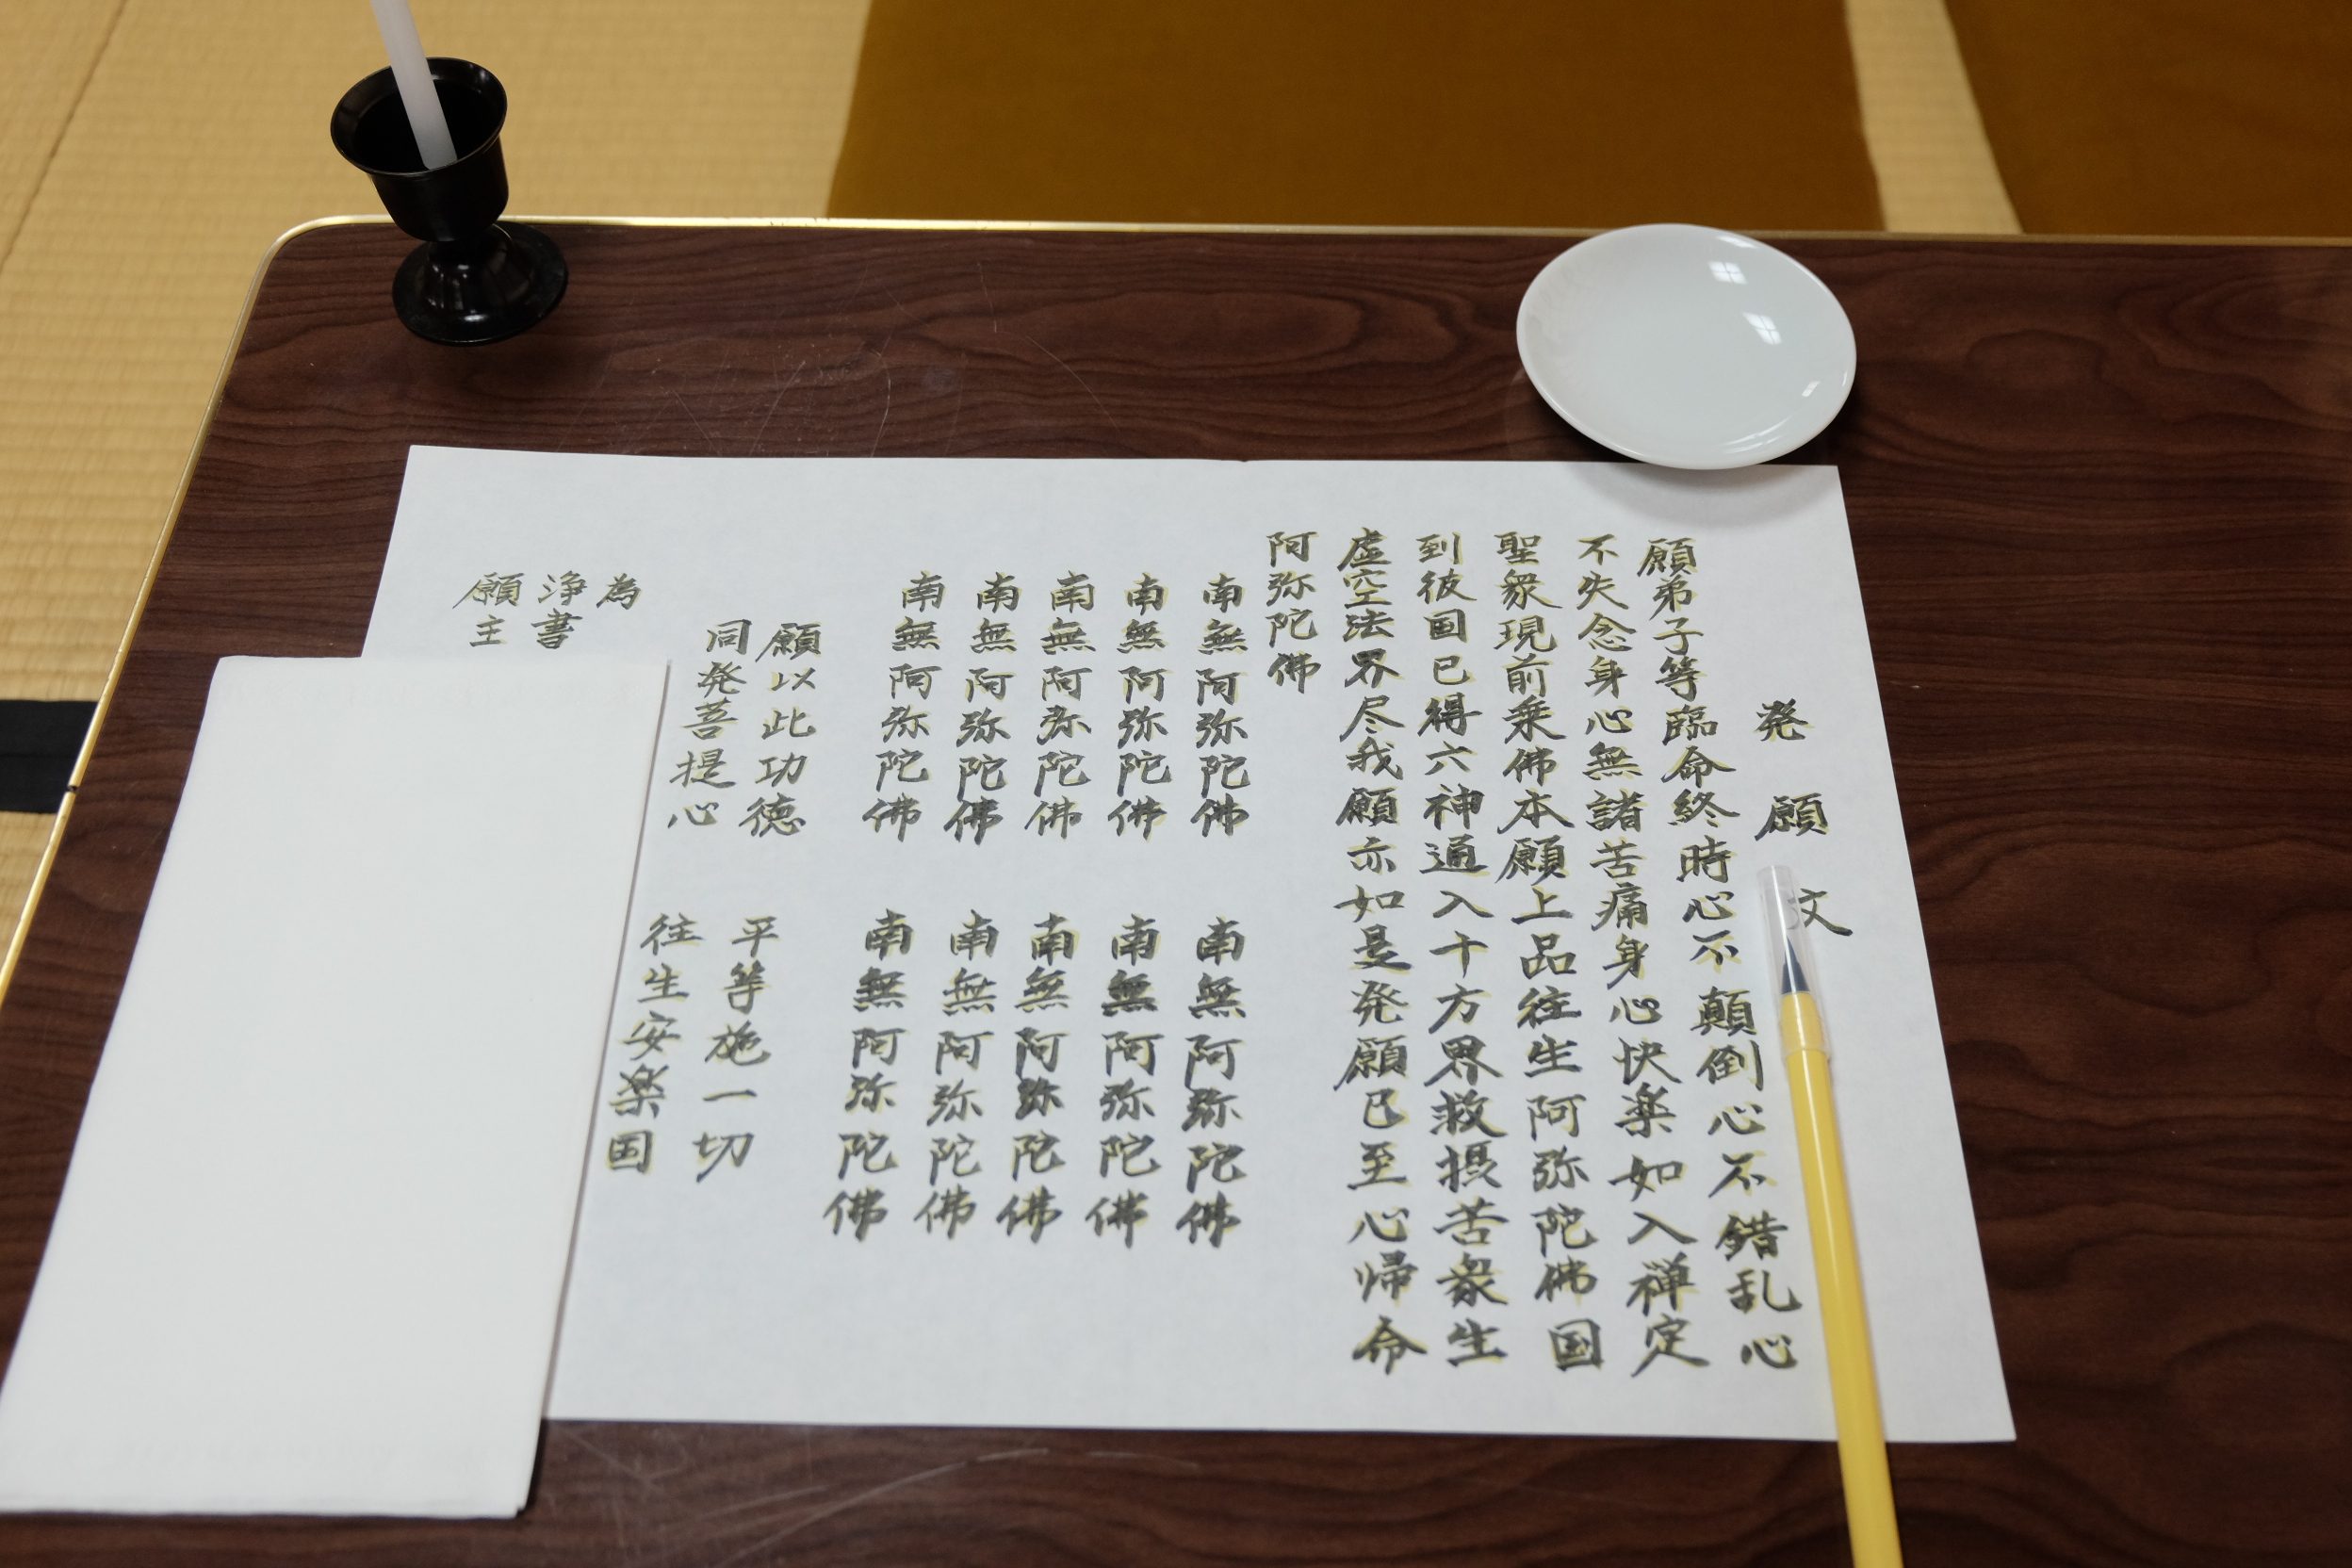 発願文
願弟子等臨命終時心不顛倒心不錯乱心
不失念身心無諸苦痛身心快楽如入禅定
聖衆現前乗佛本願上品往生阿弥陀佛国
到彼国已得六神通入十方界救摂苦衆生
虚空法界尽我願亦如是発願已至心帰命
阿弥陀佛
南無阿弥陀佛 南無阿弥陀佛
南無阿弥陀佛 南無阿弥陀佛
南無阿弥陀佛 南無阿弥陀佛
南無阿弥陀佛 南無阿弥陀佛
南無阿弥陀佛 南無阿弥陀佛
願以此功徳 平等施一切
同発菩提心 往生安楽国
為
浄書
願主